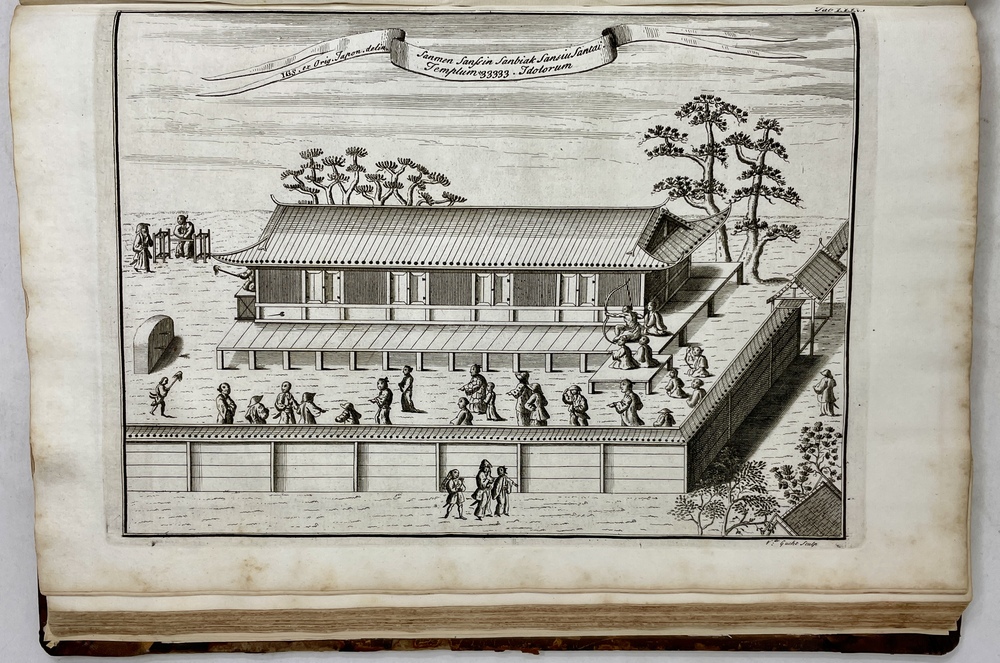 IGS. ex Orig. Japon. delin.
Sanmen Sanſcin Sanbiak Sansiu Santai.
Templum 33333. Idolorum
Gucht Sculp